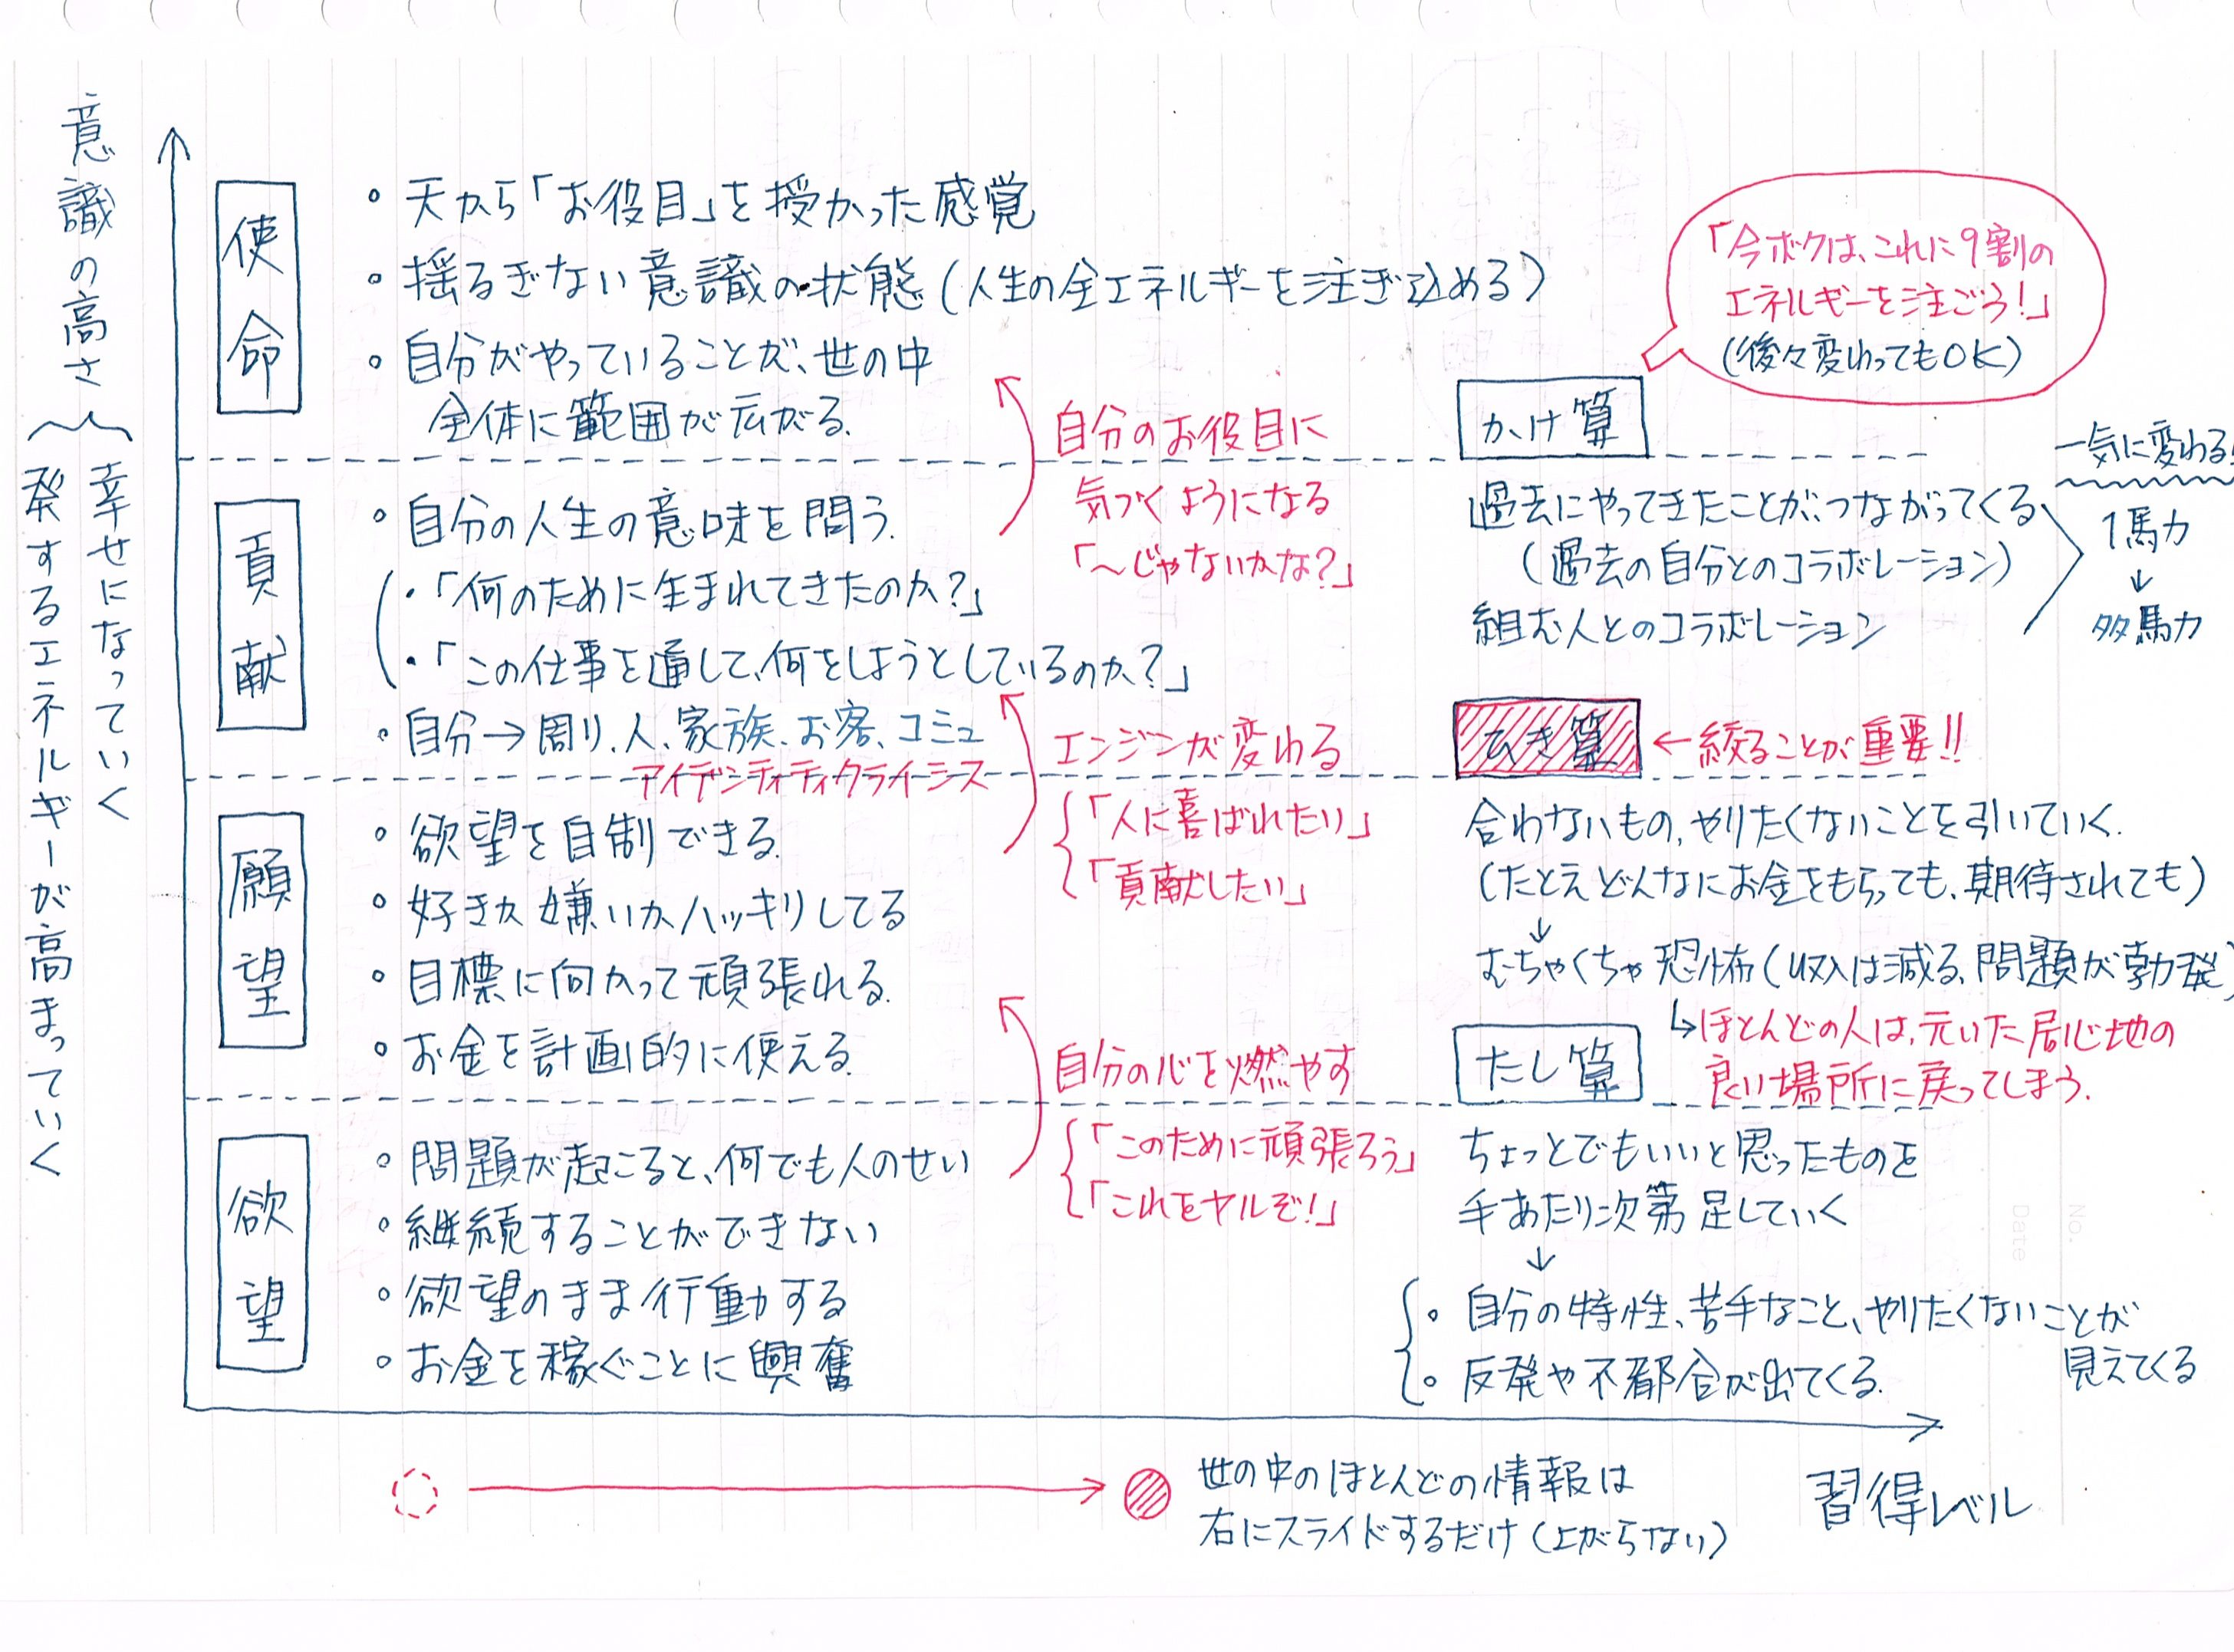 意識の高さ
幸せになっていく
発するエネルギーが高まっていく
使命
・天から「お役目」を授かった感覚
・揺るぎない意識の状態(人生の全エネルギーを注ぎ込める)
・自分がやっていることが、世の中
全体に範囲が広がる.
貢献
・自分の人生の意味を問う.
・「何のために生まれてきたのか?」
・「この仕事を通して、何をしようとしているのか?」
・自分→周り、人、家族、お客、コミュ
アイデンティティクライシス
願望
・欲望を自制できる.
・好きか嫌いかハッキリしてる
・目標に向かって頑張れる.
・お金を計画的に使える.
欲望
・問題が起こると、何でも人のせい
・継続することができない
・欲望のまま行動する
・お金を稼ぐことに興奮
自分のお役目に
気づくようになる
「〜じゃないかな?」
エンジンが変わる
「人に喜ばれたい」
「貢献したい」
自分の心を燃やす
「このために頑張ろう」
「これをヤルぞ!」
「今ボクは、これに9割の
エネルギーを注ごう!」
(後々変わってもOK)
かけ算
過去にやってきたことが、つながってくる
(過去の自分とのコラボレーション)
組む人とのコラボレーション
一気に変わる!
1馬力
↓
多馬力
ひき算
←絞ることが重要!!
合わないもの、やりたくないことを引いていく.
(たとえどんなにお金をもらっても、期待されても)
↓
むちゃくちゃ恐怖(収入は減る、問題が勃発)
↳ほとんどの人は、元いた居心地の
良い場所に戻ってしまう.
たし算
ちょっとでもいいと思ったものを
手あたり次第足していく
↓
・自分の特性、苦手なこと、やりたくないことが
見えてくる
・反発や不都合が出てくる.
世の中のほとんどの情報は
右にスライドするだけ(上がらない)
習得レベル
No.
Date